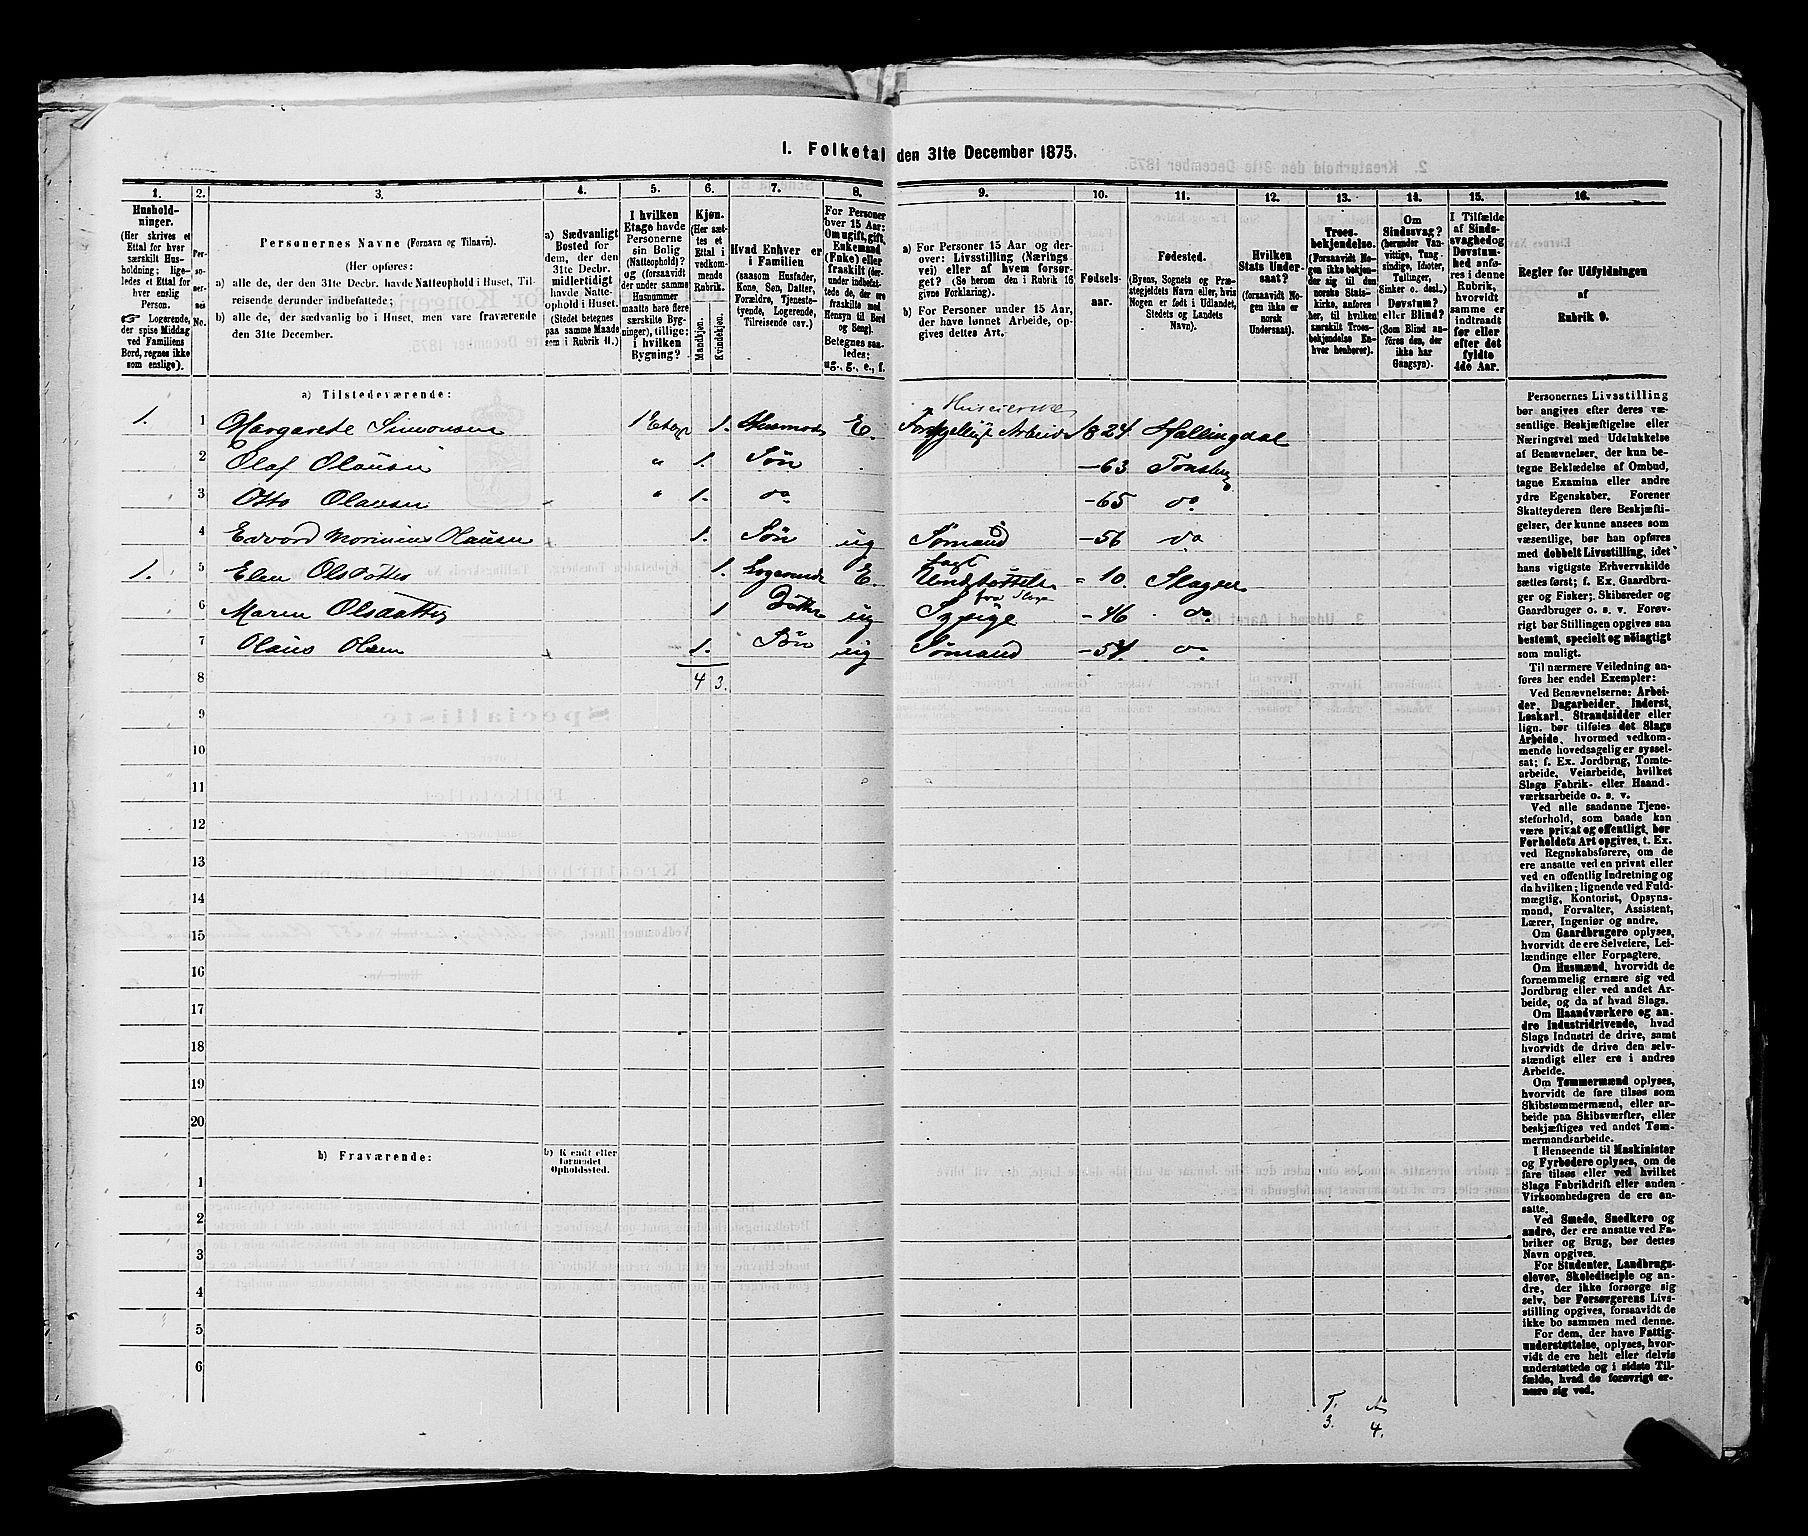 1. Folketal den 31te December 1875.
1. 2. 3. 4. 5. 6. 7. 8. 9. 10. 11. 12. 13. 14. 15. 16.
Hushold-
ninger.
(Her skrives et
Ettal for hver
særskilt Hus-
holdning; lige-
ledes et Ettal
for hver
enslig
Person.
☞ Logerende,
der spise Middag
ved Familiens
Bord, regnes ikke
som enslige).
Per-
so-
ner-
nes
No.
Personernes Navne (Fornavn og Tilnavn).
(Her opføres:
a) alle de, der den 31te Decbr. havde Natteophold i Huset, Til-
reisende derunder indbefattede;
b) alle de, der sædvanlig bo i Huset, men vare fraværende
den 31te December.
a) Sædvanligt
Bosted for
dem, der den
31te Decbr.
midlertidigt
havde Natte-
ophold i Huset.
(Stedet betegnes
paa samme Maade
som i Rubrik 11.)
I hvilken
Etage havde
Personerne
sin Bolig
(Natteophold)?
og (forsaavidt
der under samme
Husnummer
maatte høre flere
særskilte Byg-
ninger), tillige:
i hvilken
Bygning?
Kjøn.
(Her sæt-
tes et
Ettal i
vedkom-
mende
Rubrik.
Mandkjøn.
Kvindekjøn.
Hvad Enhver er
i Familien
(saasom Husfader,
Kone, Søn, Datter,
Forældre, Tjeneste-
tyende, Logerende,
Tilreisende osv.)
For Personer
over 15 Aar:
Om ugift, gift,
Enkemand
(Enke) eller
fraskilt (der-
under indbefat-
tede de, der ere
fraskilte med
Hensyn til Bord
og Seng).
Betegnes saa-
ledes:
ug., g., e., f.
a) For Personer 15 Aar og der-
over: Livsstilling (Nærings
vei) eller af hvem forsør-
get? (Se herom den i Rubrik 16
givne Forklaring).
b) For Personer under 15 Aar,
der have lønnet Arbeide, op-
gives dettes Art.
Fødsels-
aar.
Fødested.
(Byens, Sognets og Præ-
stegjeldets Navn eller, hvis
Nogen er født i Udlandet,
Stedets og Landets
Navn).
Hvilken
Stats Under-
saat?
(forsaavidt No-
gen ikke er
norsk
Undersaat).
Troes-
bekjendelse.
(Forsaavidt No-
gen ikke bekjen-
der sig til den
norske Stats-
kirke, anføres
her, til hvilken
særskilt Troes-
bekjendelse En-
hver henhører).
Om
Sindssvag?
(herunder Van-
vittige, Tung-
sindige, Idioter,
Tullinger,
Sinker o. desl.)
Døvstum?
eller Blind?
(Som Blind an-
føres den, der
ikke har
Gangsyn).
I Tilfælde
af Sinds-
svaghed og
Døvstum-
hed anfø-
res i denne
Rubrik,
hvorvidt
samme er
indtraadt
før eller
efter det
fyldte
4de Aar.
Regler for Udfyldningen
af
Rubrik 9.
a) Tilstedeværende:
Huseierske
1. 1 Margarete Simonsen 1 Etage 1. Husmoder E. Arbeide 1824 Hallingdal
2 Olaf Olausen " 1. Søn -63 Tønsberg
3 Otto Olausen " 1. do -65 do
4 Edvard Olausen 1. Søn ug Sømand -56 do
1. 5 Elen Olsdatter 1. Logerende E. Understøttelse fra -10. Slagen
6 Maren Olsdatter 1 Datter ug Sypige -46 do
7 Olaus Olsen 1. Søn ug Sømand -54. do
8 4 3.
9
10
11
12
13
14
15
16
17
18
19
20
b) Fraværende:
b) Kjendt eller
formodet
Opholdssted.
1
2
3
4
5
6
Personernes Livsstilling
bør angives efter deres væ-
sentlige Beskjæftigelse eller
Næringsvei med Udelukkelse
af Benævnelser, der kun be-
tegne Beklædelse af Ombud,
tagne Examina eller andre
ydre Egenskaber. Forener
Skatteyderen flere Beskjæfti-
gelser, der kunne ansees som
væsentlige, bør han opføres
med dobbelt Livsstilling, idet
hans vigtigste Erhvervskilde
sættes først; f. Ex. Gaardbru-
ger og Fisker; Skibsreder og
Gaardbruger o. s. v. Forøv-
rigt bør Stillingen opgives saa
bestemt, specielt og nöiagtigt
som muligt.
Til nærmere Veiledning an-
føres her endel Exempler:
Ved Benævnelserne: Arbei-
der, Dagarbeider, Inderst,
Løskarl, Strandsidder eller
lign. bør tilføies det Slags
Arbeide, hvormed vedkom-
mende hovedsagelig er syssel-
sat; f. Ex. Jordbrug, Tomte-
arbeide, Veiarbeide, hvilket
Slags Fabrik- eller Haand-
værksarbeide o. s. v.
Ved alle saadanne Tjene-
steforhold, som baade kan
være privat og offentligt, bør
Forholdets Art opgives, t. Ex.
ved Regnskabsførere, om de
ere ansatte ved en privat eller
ved en offentlig Indretning og
da hvilken; lignende ved Fuld-
mægtig, Kontorist, Opsyns-
mand, Forvalter, Assistent,
Lærer, Ingeniør og andre.
Om Gaardbrugere oplyses,
hvorvidt de ere Selveiere, Lei-
lændinge eller Forpagtere.
Om Husmænd, hvorvidt de
fornemmelig ernære sig ved
Jordbrug eller ved andet Ar-
beide, og da af hvad Slags.
Om Haandværkere og an-
dre Industridrivende, hvad
Slags Industri de drive, samt
hvorvidt de drive den selv-
stændigt eller ere i andres
Arbeide.
Om Tømmermænd oplyses,
hvorvidt de fare tilsøs som
Skibstømmermænd, eller ar-
beide paa Skibsværfter, eller
beskjæftiges ved andet Tøm-
mermandsarbeide.
I Henseende til Maskinister
og Fyrbødere oplyses, om de
fare tilsøs eller ved hvilket
Slags Fabrikdrift eller anden
Virksomhedsgren de ere an-
satte.
Ved Smede, Snedkere og
andre, der ere ansatte ved Fa-
briker og Brug, bør dettes
Navn opgives.
For Studenter, Landbrugs-
elever, Skoledisciple og an-
dre, der ikke forsørge sig
selv, bør Forsørgerens Livs-
stilling opgives, forsaavidt de
ikke bo sammen med denne.
For dem, der have Fattig-
understøttelse, oplyses, hvor-
vidt de ere helt eller delvis
understøttede og i sidste Til-
fælde, hvad de forøvrigt er-
nære sig ved.
T.
3. 4.